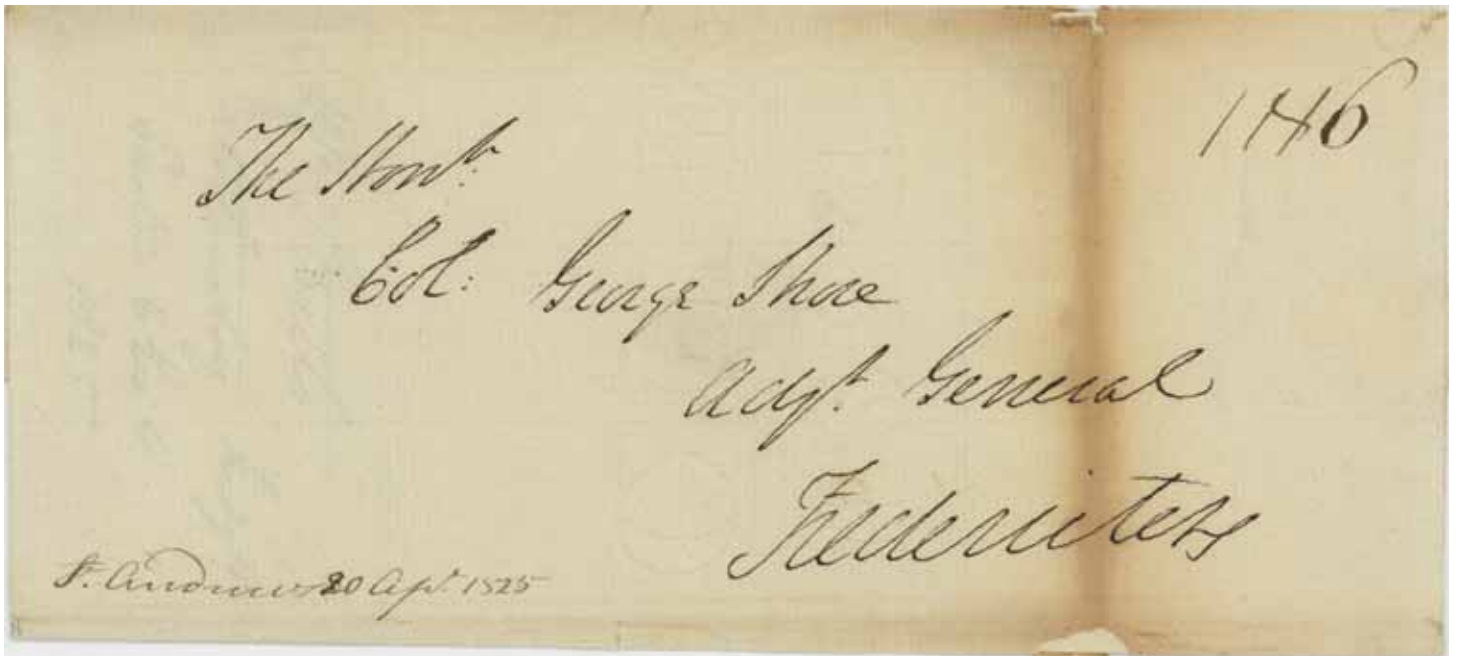 1/1/6
The Honble
Col: George Shore
Adjt. General
Fredericton
St. Andrews 20 Apl. 1825